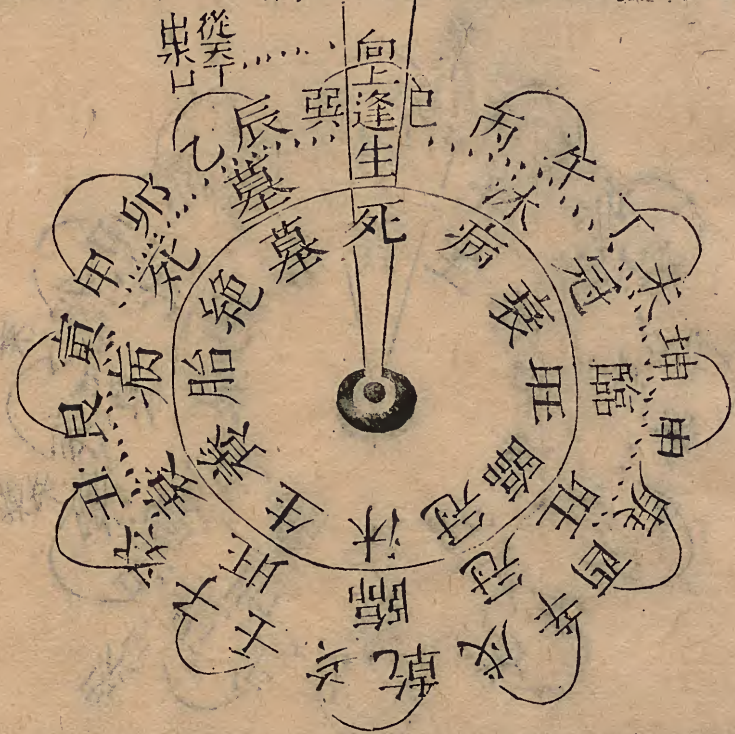 向上逢生
巽巳
丙午
丁未
坤申
庚酉
辛戌
乾亥
壬子
癸丑
艮寅
甲卯
乙辰
沐
冠
臨
旺
冠
臨
旺
衰
病
死
墓
死
病
衰
旺
臨
冠
沐
生
養
胎
絕
墓